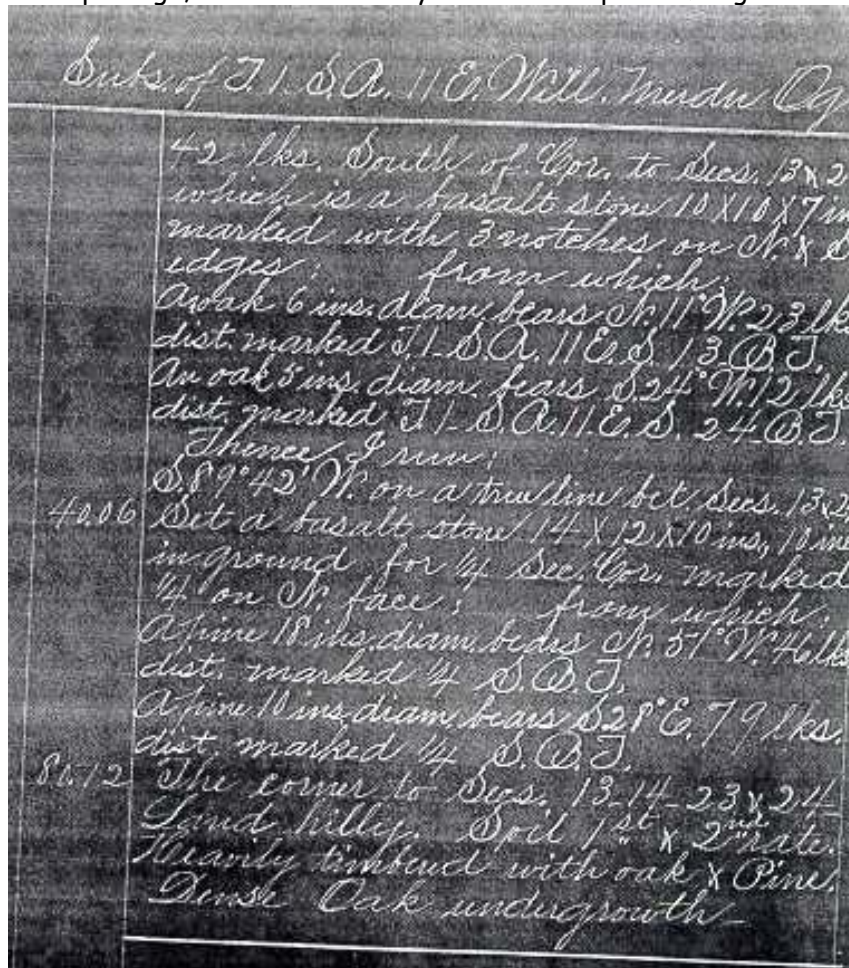 Subs. of T. 1. S. R. 11 E. Will. Merdn Og
42 lks. South of Cor. to Secs. 13 & 2
which is a basalt stone 10 X 10 X 7 in
marked with 3 notches on N. & S
edges; from which;
An oak 6 ins. diam. bears N. 11° W. 23 lks
dist. marked T. 1. S. R. 11 E. S. 13. B. T.
An oak 5 ins. diam. bears S. 24° W. 12 lks
dist. marked T. 1. S. R. 11. E. S. 24. B. T.
Thence I run;
S. 89° 42' W. on a true line bet. Secs. 13 & 2
40.06 Set a basalt stone 14 X 12 X 10 ins, 10 ins
in ground for 1/4 Sec. Cor. marked
1/4 on N. face; from which;
A pine 18 ins. diam. bears N. 57° W. 46 lks
dist. marked 1/4 S. B. T.
A pine 10 ins. diam. bears S 28° E. 79 lks.
dist. marked 1/4 S. B. T.
80.12 The corner to Secs. 13 - 14 - 23 & 24
Land hilly. Soil 1st & 2nd rate.
Heavily timbered with oak & Pine.
Dense Oak undergrowth